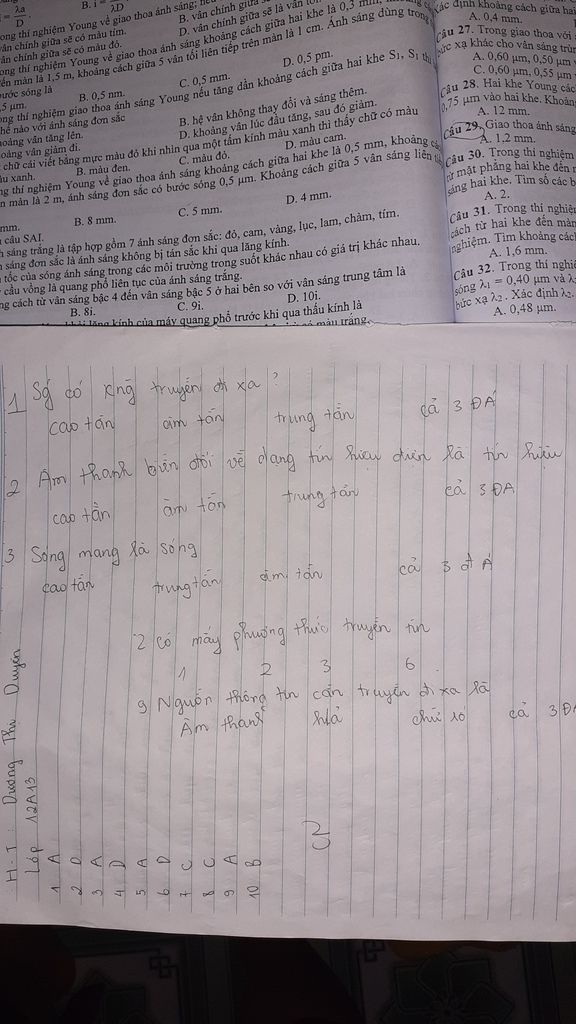 i = λa/D.
B. i =
λD
ong thí nghiệm Young về giao thoa ánh sáng;
ân chính giữa sẽ có màu tím.
B. vân chính giữa
ân chính giữa sẽ có màu đỏ.
D. vân chính giữa sẽ là vân
ong thí nghiệm Young về giao thoa ánh sáng khoảng cách giữa hai khe là 0,3
ến màn là 1,5 m, khoảng cách giữa 5 vân tối liên tiếp trên màn là 1 cm. Ánh sáng dùng trong
bước sóng là
,5 μm.
B. 0,5 nm.
C. 0,5 mm.
D. 0,5 pm.
ng thí nghiệm giao thoa ánh sáng Young nếu tăng dần khoảng cách giữa hai khe S₁, S₁ thì
hế nào với ánh sáng đơn sắc
hoảng vân tăng lên.
B. hệ vân không thay đổi và sáng thêm.
oảng vân giảm đi.
D. khoảng vân lúc đầu tăng, sau đó giảm.
chữ cái viết bằng mực màu đỏ khi nhìn qua một tấm kính màu xanh thì thấy chữ có màu
àu xanh.
B. màu đen.
C. màu đỏ.
D. màu cam.
ng thí nghiệm Young về giao thoa ánh sáng khoảng cách giữa hai khe là 0,5 mm, khoảng
n màn là 2 m, ánh sáng đơn sắc có bước sóng 0,5 μm. Khoảng cách giữa 5 vân sáng liên
mm.
B. 8 mm.
C. 5 mm.
D. 4 mm.
câu SAI.
h sáng trắng là tập hợp gồm 7 ánh sáng đơn sắc: đỏ, cam, vàng, lục, lam, chàm, tím.
sáng đơn sắc là ánh sáng không bị tán sắc khi qua lăng kính.
tốc của sóng ánh sáng trong các môi trường trong suốt khác nhau có giá trị khác nhau.
cầu vồng là quang phổ liên tục của ánh sáng trắng.
ng cách từ vân sáng bậc 4 đến vân sáng bậc 5 ở hai bên so với vân sáng trung tâm là
B. 8i.
C. 9i.
D. 10i.
lăng kính của máy quang phổ trước khi qua thấu kính là
màu trắng.
xác định khoảng cách giữa hai
A. 0,4 mm.
Câu 27. Trong giao thoa với
bức xạ khác cho vân sáng
A. 0,60 μm, 0,50 μm
C. 0,60 μm, 0,55 μm
Câu 28. Hai khe Young các
0,75 μm vào hai khe. Khoản
A. 12 mm.
Câu 29. Giao thoa ánh sáng
A. 1,2 mm.
Câu 30. Trong thí nghiệm
từ mặt phẳng hai khe đến
sáng hai khe. Tìm số các b
A. 2.
Câu 31. Trong thí nghiệm
cách từ hai khe đến màn
nghiệm. Tìm khoảng các
A. 1,6 mm.
Câu 32. Trong thí nghiệ
sóng λ₁ = 0,40 μm và λ₂
bức xạ λ₂. Xác định λ₂.
A. 0,48 μm.
1 Sg có kng truyền đi xa ?
cao tần âm tần trung tần cả 3 ĐA
2 Âm thanh biến đổi về dạng tín hiệu điện là tín hiệu
cao tần âm tần trung tần cả 3 ĐA
3 Sóng mang là sóng
cao tần trung tần âm tần cả 3 đA
2 có mấy phương thức truyền tin
1 2 3 6
9 Nguồn thông tin cần truyền đi xa là
Âm thanh h/ả chữ số cả 3 ĐA
H.T : Dương Thị Duyên
Lớp 12A13
1 A
2 D
3 A
4 D
5 A
6 D
7 C
8 C
9 A
10 B